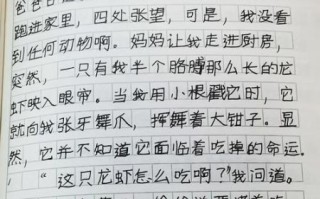 跑进家里，四处张望，可是，我没看
到任何动物啊。妈妈让我走进厨房，
突然，一只有我半个胳膊那么长的龙
虾映入眼帘。当我用小棍戳它时，它
就向我张牙舞爪，挥舞着大钳子。显
然，它并不知道它面临着吃掉的命运。
“这只龙虾怎么吃啊？”我问道。